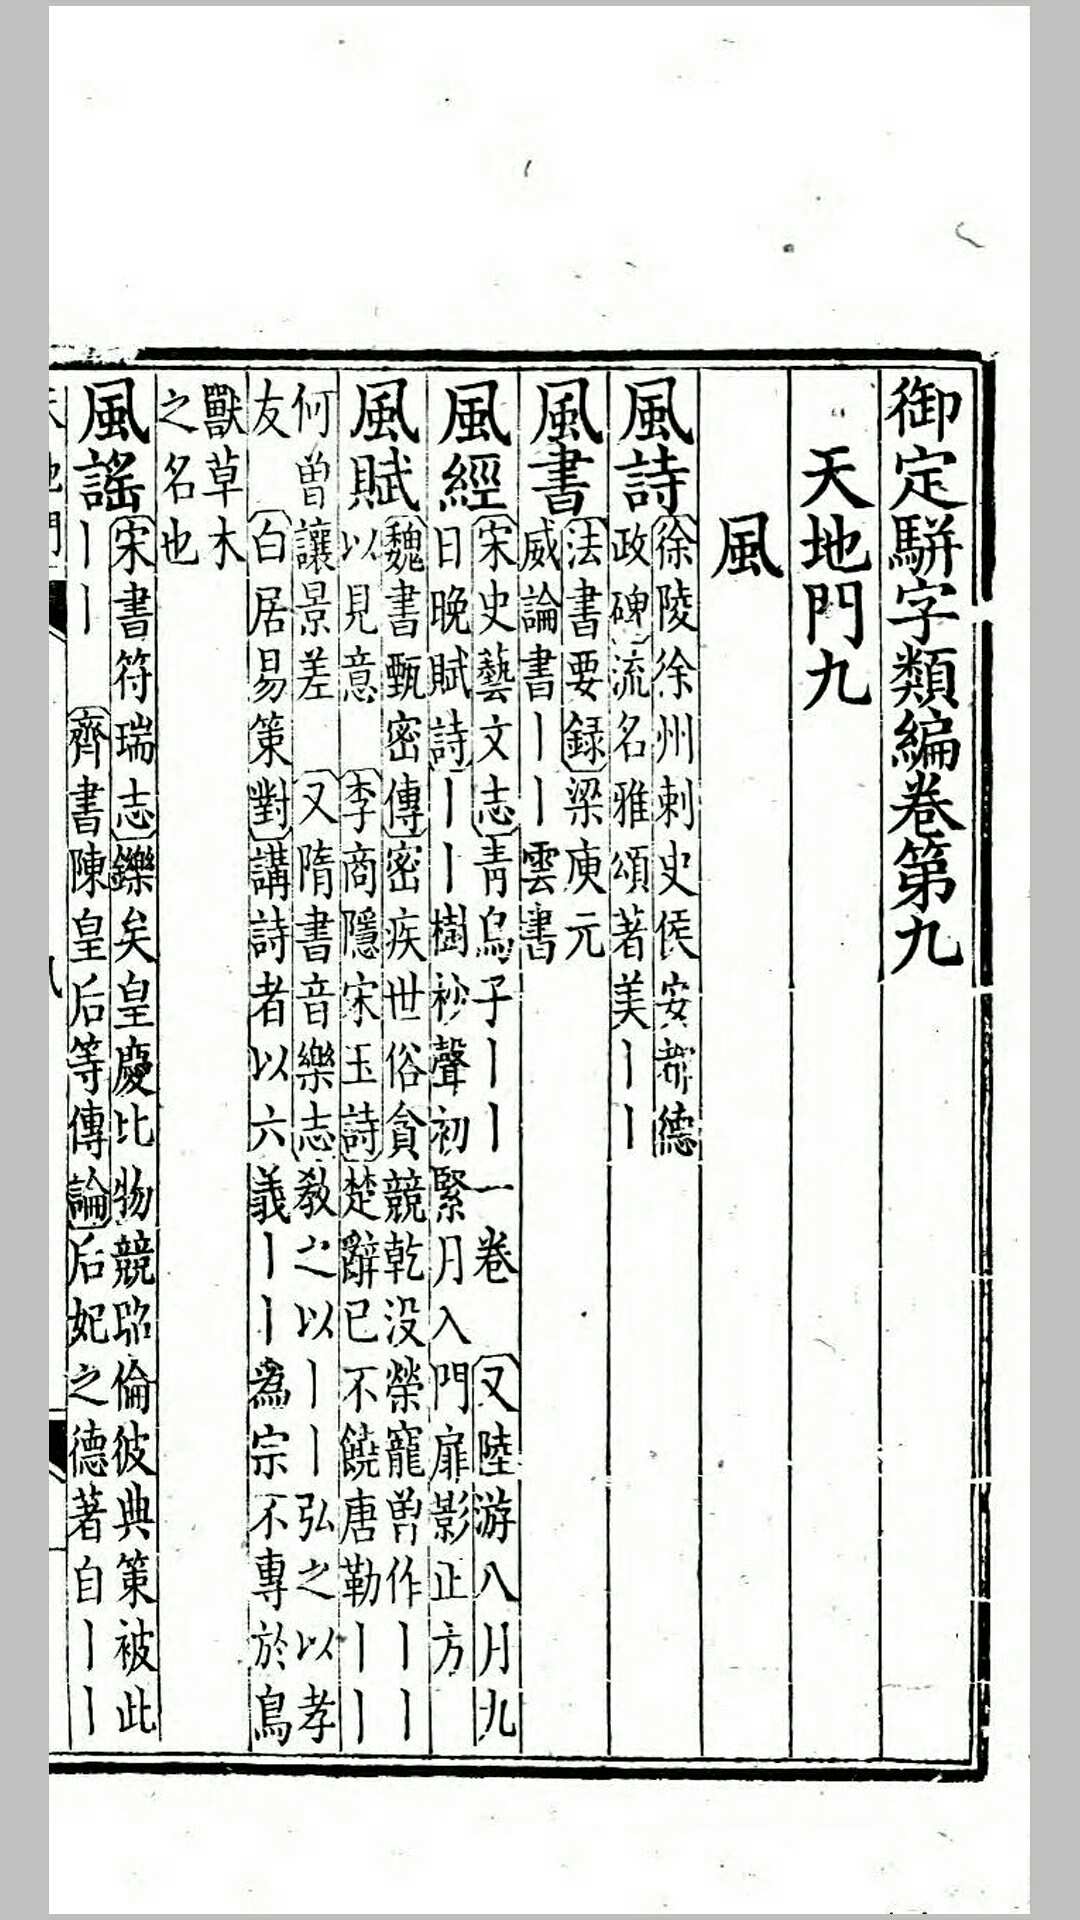 御定駢字類編卷第九
天地門九
風
風詩
徐陵徐州刺史侯安都德
政碑流名雅頌著美丨丨
風書
法書要録梁庾元
威論書丨丨雲書
風經
宋史藝文志靑烏子丨丨一卷 又陸游八月九
日晚賦詩丨丨樹杪聲初緊月入門扉影正方
風賦
魏書甄密傳密疾世俗貪競乾没榮寵曾作丨丨
以見意 李商隱宋玉詩楚辭已不饒唐勒丨丨
何曾讓景差 又隋書音樂志教之以丨丨弘之以孝
友 白居易策對講詩者以六義丨丨爲宗不專於鳥
獸草木
之名也
風謠
宋書符瑞志鑠矣皇慶比物競昭倫彼典策被此
丨丨 齊書陳皇后等傳論后妃之德著自丨丨